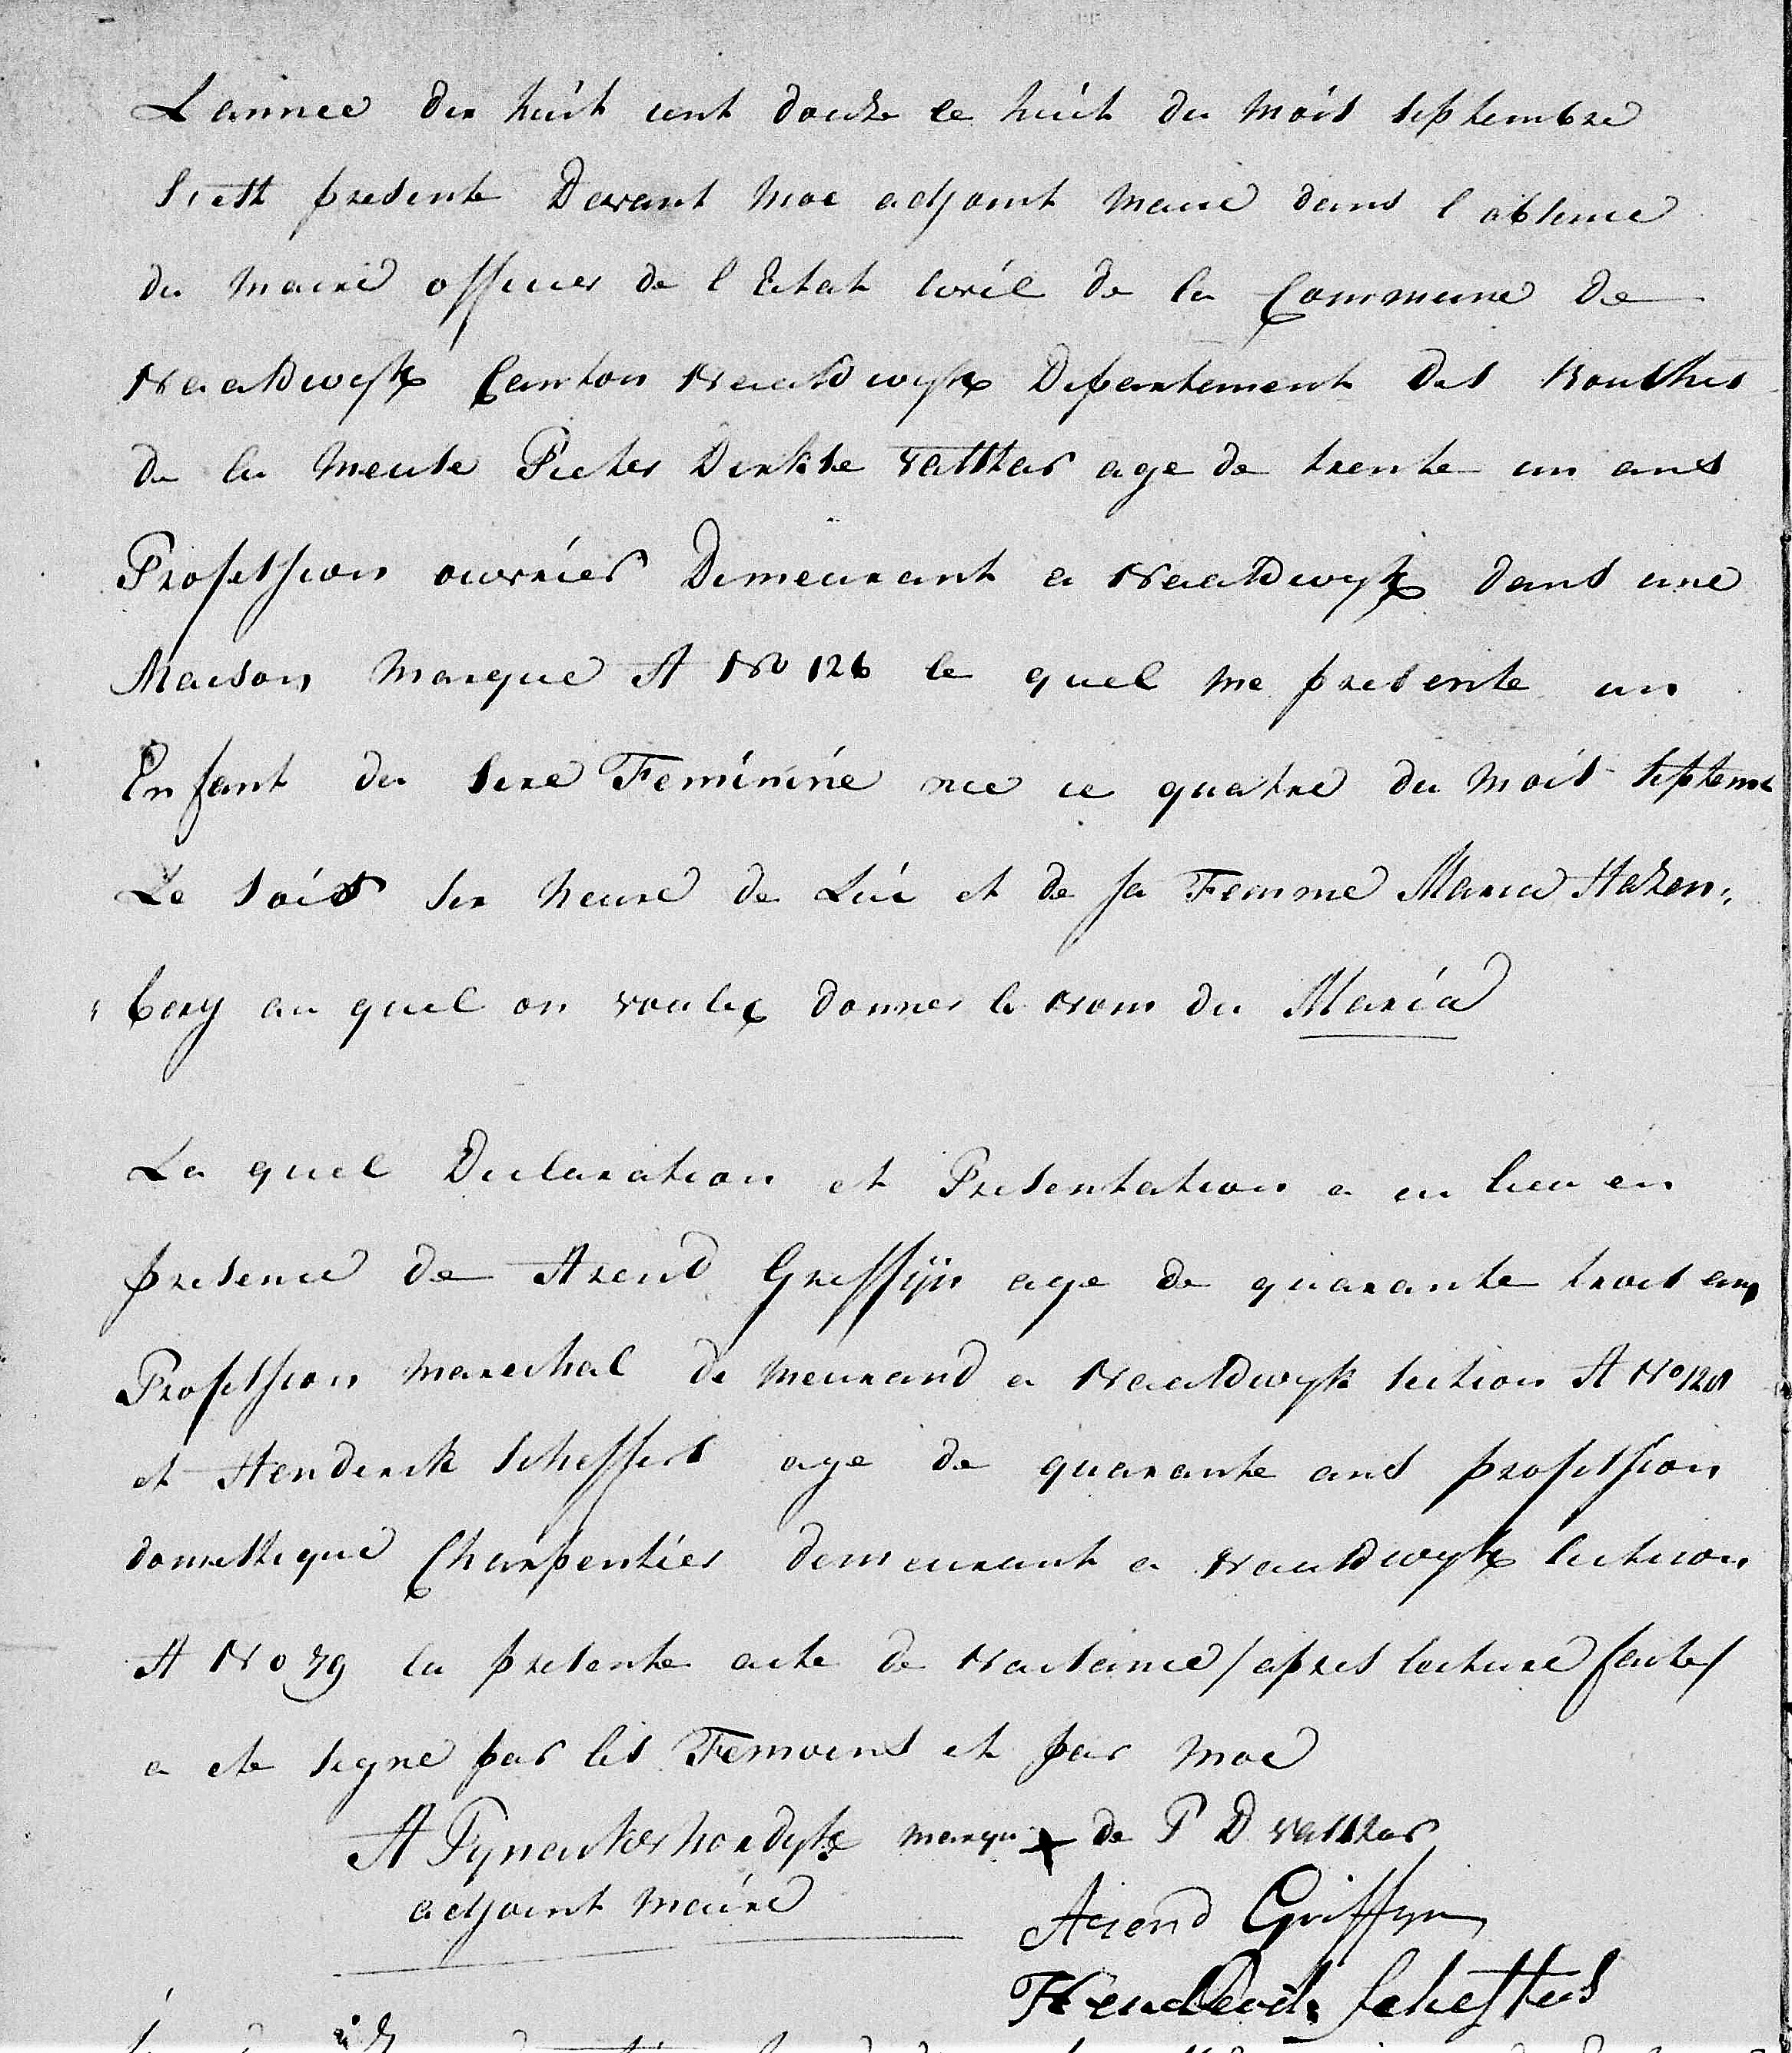 Lannee dix huit cent douze le huit du Mois Septembre
S'est presente Devant Moi adjoint Maire dans l absence
du Maire officier de l Etat Civil de la Commune de
Naaldwyk Canton Naaldwyk Departement des Bouches
de la Meuse Pieter Dirkse Vasstar age de trente un ans
Profession ouvrier Demeurant a Naaldwyk dans une
Maison Marque A No 126 le quel me presente un
Enfant du Sexe Feminine nee le quatre du Mois Septem
Le Soir Six heure de Lui et de sa Femme Maria Hazen,
, berg au quel on voulez donner le Nom du Maria
La quel Declaration et Presentation a eu lieu en
presence de Arend Greffijn age de quarante trois ans
Profession Marechal de meurand a Naaldwyk Section A No
et Henderik Scheffers age de quarante ans profession
domestique Charpentier demeurant a Naaldwyk Section
A No 79 la presente acte de Naisance / apres lecture faite /
a ete signe par les Temoins et par Moi
A Tynaukershoedyk marque x de P D Vasstar
adjoint Maire
Arend Griffyn
Henderik Scheffers